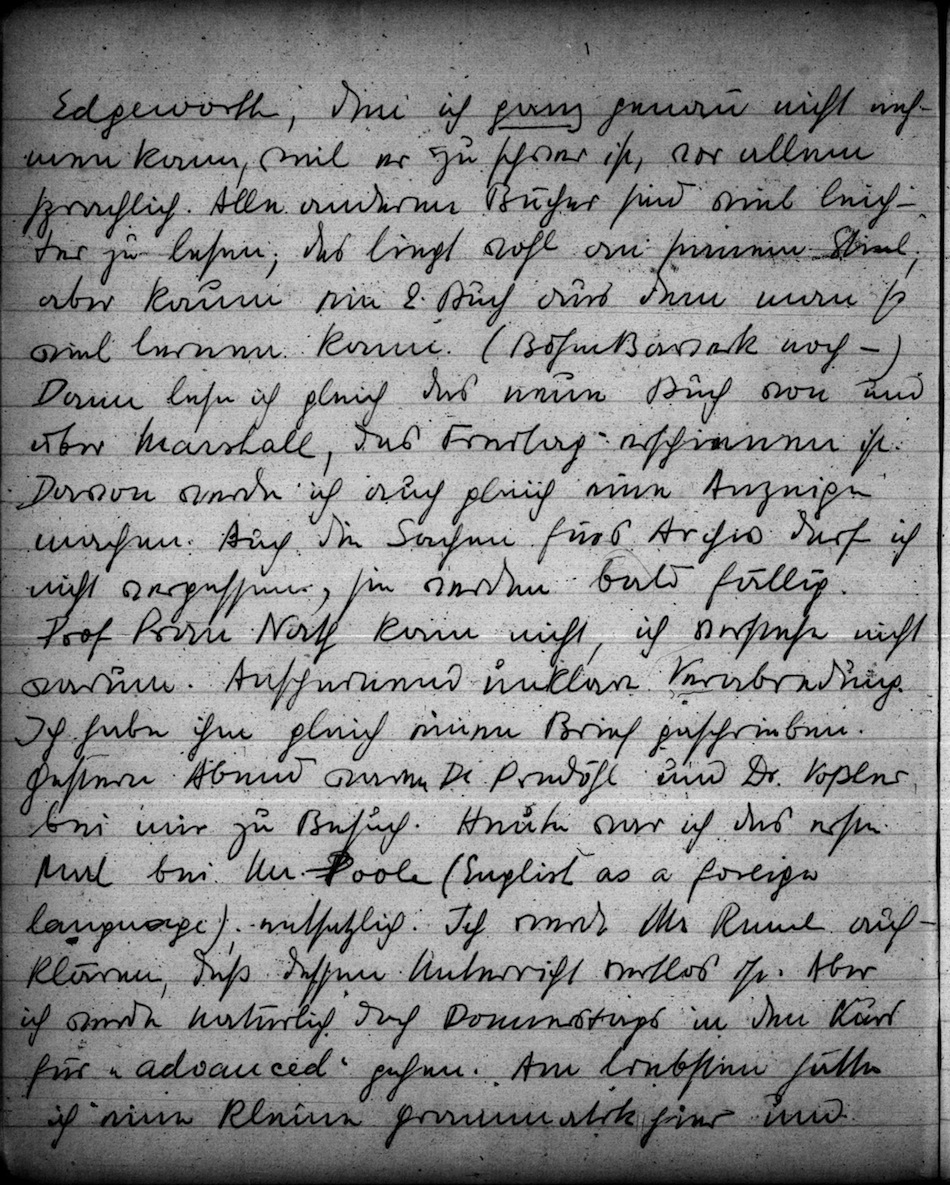 Edgeworth, den ich ganz genau nicht neh-
men kann, weil er zu schwer ist, vor allem
sprachlich. Alle anderen Bücher sind viel leich-
ter zu lesen; das liegt wohl an seinem Stiel,
aber kaum ein 2. Buch aus dem man so
viel lernen kann. (Böhm Bawerk noch –)
Dann lese ich gleich das neue Buch von und
über Marshall, das Freitag erschienen ist.
Davon werde ich auch gleich eine Anzeige
machen. Auch die Sachen fürs Archiv darf ich
nicht vergessen, sie werden bald fällig.
Prof Pran Nath kam nicht, ich verstehe nicht
warum. Anscheinend unklare Verabredung.
Ich habe ihm gleich einen Brief geschrieben.
Gestern Abend waren Dr Predöhl und Dr. Voßler
bei mir zu Besuch. Heute war ich das erste
Mal bei Mr. Poole (English as a foreign
language); entsetzlich. Ich werde Mr auf-
klären, daß dessen Unterricht wertlos ist. Aber
ich werde natürlich doch Donnerstags in den Kurs
für „advanced“ gehen. Am liebsten hätte
ich eine kleine Grammatik hier und